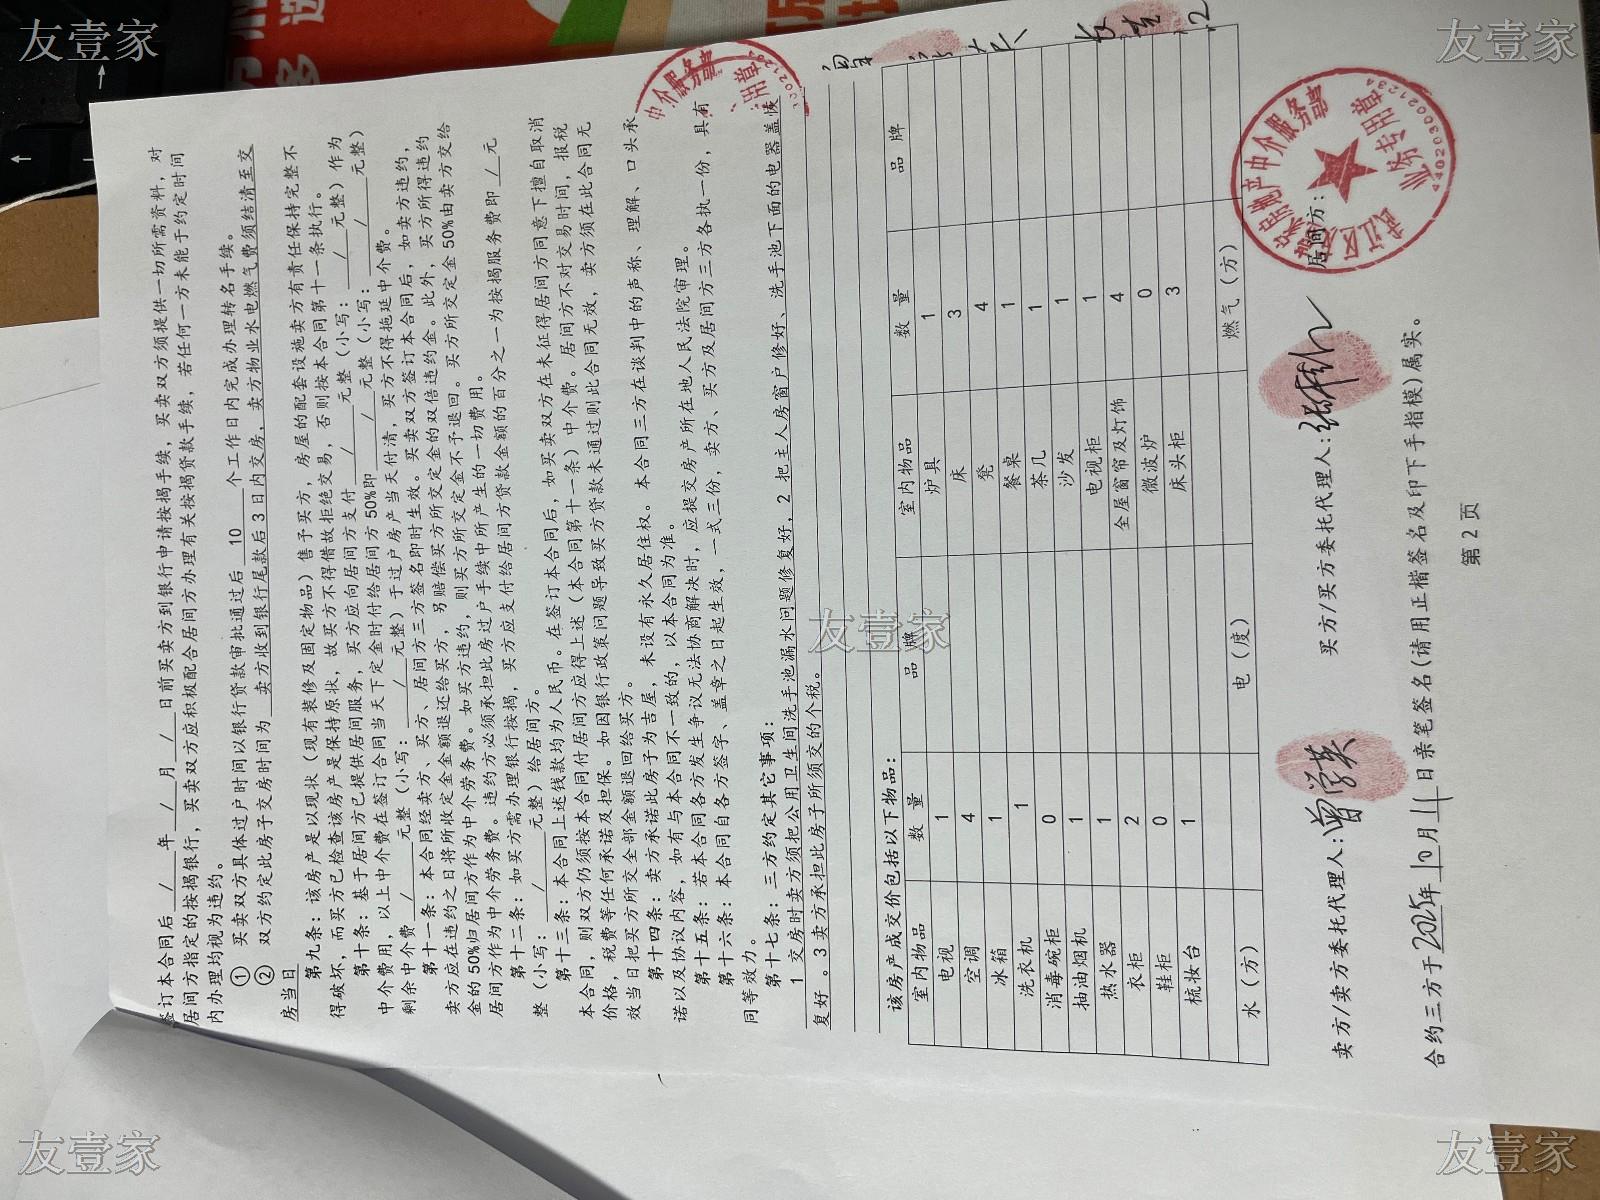 签订本合同后 / 年 / 月 / 日前买卖方到银行申请按揭手续，买卖双方须提供一切所需资料，对
居间方指定的按揭银行，买卖双方应积极配合居间方办理有关按揭贷款手续，若任何一方未能于约定时间
内办理均视为违约。
① 买卖双方具体过户时间以银行贷款审批通过后 10 个工作日内完成办理转名手续。
② 双方约定此房子交房时间为 卖方收到银行尾款后3日内交房，卖方物业水电燃气费须结清至交
房当日
第九条：该房产是以现状（现有装修及固定物品）售予买方，房屋的配套设施卖方有责任保持完整不
得破坏，而买方已检查该房产是保持原状，故买方不得借故拒绝交易，否则按本合同第十一条执行。
第十条：基于居间方已提供居间服务，买方应向居间方支付 / 元整（小写： / 元整）作为
中介费用，以上中介费在签订合同当天下定金时付给居间方50%即 / 元整（小写： / 元整）
剩余中介费 / 元整（小写： / 元整）于过户房产当天付清，买方不得拖延中介费。
第十一条：本合同经卖方、买方、居间方三方签名即时生效。买卖双方签订本合同后，如卖方违约，
卖方应在违约之日将所收定金金额退还给买方，另赔偿买方所交定金的双倍违约金。此外，买方所得违约
金的50%归居间方作为中介劳务费。如买方违约，则买方所交定金不予退回。买方所交定金50%由卖方交给
居间方作为中介劳务费。违约方必须承担此房过户手续中所产生的一切费用。
第十二条：如买方需办理银行按揭，买方应支付给居间方贷款金额的百分之一为按揭服务费即 / 元
整（小写： / 元整）给居间方。
第十三条：本合同上述钱款均为人民币。在签订本合同后，如买卖双方在未征得居间方同意下擅自取消
本合同，则双方仍须按本合同付居间方应得上述（本合同第十一条）中介费。居间方不对交易时间，报税
价格，税费等任何承诺及担保。如因银行政策问题导致买方贷款未通过则此合同无效，卖方须在此合同无
效当日把买方所交全部金额退回给买方。
第十四条：卖方承诺此房子为吉屋，未设有永久居住权。本合同三方在谈判中的声称、理解、口头承
诺以及协议内容，如有与本合同不一致的，以本合同为准。
第十五条：若本合同各方发生争议无法协商解决时，应提交房产所在地人民法院审理。
第十六条：本合同自各方签字、盖章之日起生效，一式三份，卖方、买方及居间方三方各执一份，具有
同等效力。
第十七条：三方约定其它事项：
1 交房时卖方须把公用卫生间洗手池漏水问题修复好，2 把主人房窗户修好、洗手池下面的电器盖板
复好。3 卖方承担此房子所须交的个税。
该房产成交价包括以下物品：
室内物品 数量 品牌 室内物品 数量 品牌
电视 1 炉具 1
空调 4 床 3
冰箱 1 凳 4
洗衣机 1 餐桌 1
消毒碗柜 0 茶几 1
抽油烟机 1 沙发 1
热水器 1 电视柜 1
衣柜 2 全屋窗帘及灯饰 4
鞋柜 0 微波炉 0
梳妆台 1 床头柜 3
水（方） 电（度） 燃气（方）
卖方/卖方委托代理人： 买方/买方委托代理人： 居间方：
合约三方于2025年10月11日亲笔签名（请用正楷签名及印下手指模）属实。
第 2 页
中介服务部
产中介服务部
业务专用章
友壹家
友壹家
友壹家
友壹家
友壹家